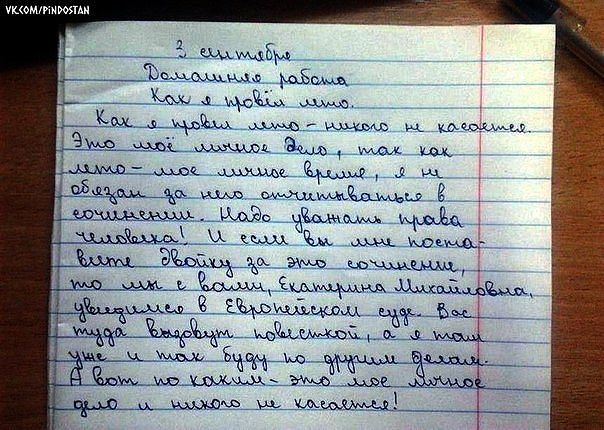 VK.COM/PINDOSTAN
3 сентября
Домашняя работа
Как я провёл лето.
Как я провел лето - никого не касается.
Это моё личное дело, так как
лето - мое личное время, я не
обязан за него отчитываться в
сочинении. Надо уважать права
человека! И если вы мне поста-
вите двойку за это сочинение,
то мы с вами, Екатерина Михайловна,
увидимся в Европейском суде. Вас
туда вызовут повесткой, а я там
уже и так буду по другим делам.
А вот по каким - это мое личное
дело и никого не касается!